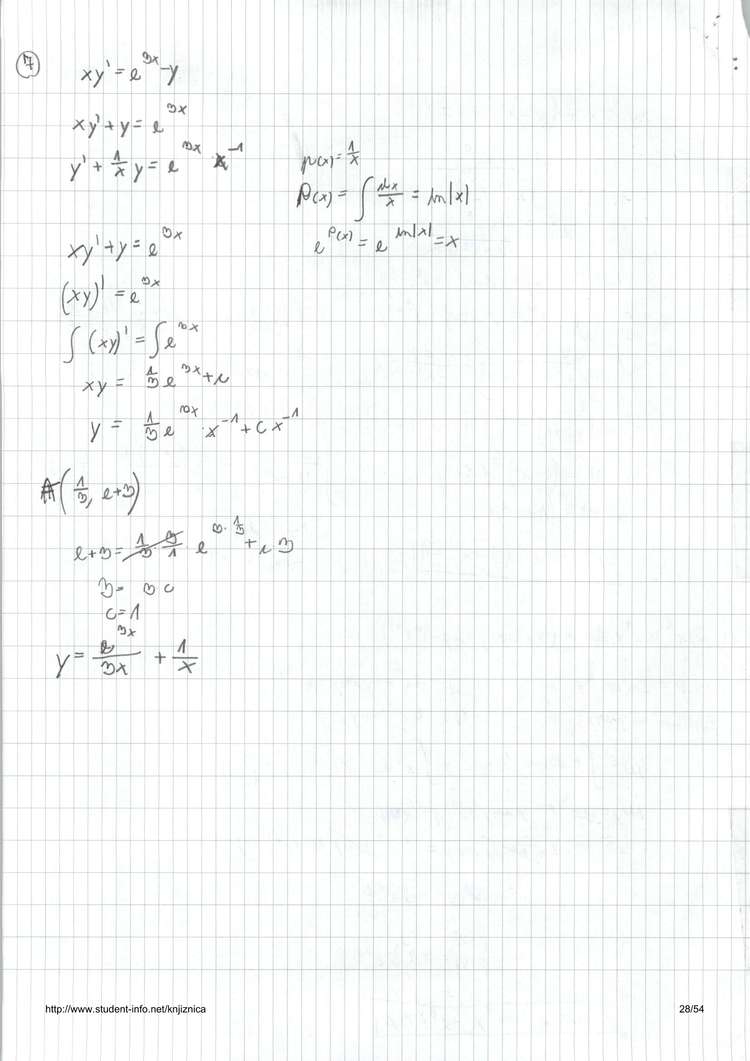 7
xy' = e^{3x} - y
xy' + y = e^{3x}
y' + \frac{1}{x} y = e^{3x} x^{-1}
p(x) = \frac{1}{x}
P(x) = \int \frac{dx}{x} = ln|x|
e^{P(x)} = e^{ln|x|} = x
xy' + y = e^{3x}
(xy)' = e^{3x}
\int (xy)' = \int e^{3x}
xy = \frac{1}{3} e^{3x} + c
y = \frac{1}{3} e^{3x} \cdot x^{-1} + c x^{-1}
A(\frac{1}{3}, e+3)
e+3 = \frac{1}{3} \cdot \frac{3}{1} e^{3 \cdot \frac{1}{3}} + c 3
3 = 3c
c = 1
y = \frac{e^{3x}}{3x} + \frac{1}{x}
http://www.student-info.net/knjiznica
28/54